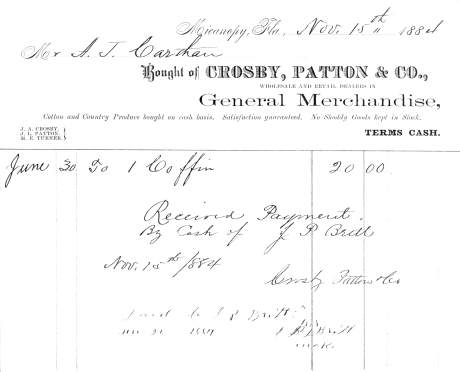 Micanopy, Fla., Nov. 15th 1884
Mr A. J.
Bought of CROSBY, PATTON & CO.,
WHOLESALE AND RETAIL DEALERS IN
General Merchandise,
Cotton and Country Produce bought on cash basis. Satisfaction guaranteed. No Shoddy Goods kept in Stock.
J. A. CROSBY,
J. L. PATTON,
M. E. TURNER.
TERMS CASH.
June 30 To 1 Coffin 20 00
Received Payment.
By Cash of J P Britt
Nov. 15th 1884
Crosby Patton & Co
J P Britt
1884
Britt